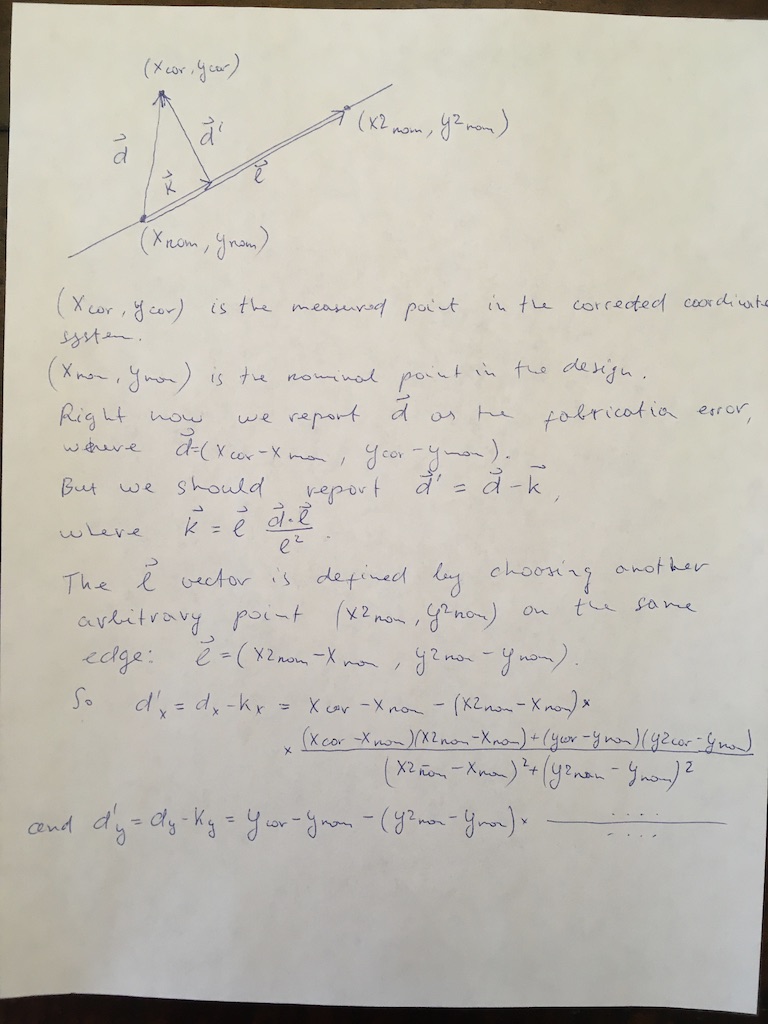 (xcor, ycor)
d⃗
d⃗'
k⃗
ℓ⃗
(x2nom, y2nom)
(xnom, ynom)
(xcor, ycor) is the measured point in the corrected coordinate
system.
(xnom, ynom) is the nominal point in the design.
Right now we report d⃗ as the fabrication error,
where d⃗=(xcor-xnom, ycor-ynom).
But we should report d⃗' = d⃗-k⃗,
where k⃗ = ℓ⃗ (d⃗·ℓ⃗)/ℓ².
The ℓ⃗ vector is defined by choosing another
arbitrary point (x2nom, y2nom) on the same
edge: ℓ⃗=(x2nom-xnom, y2nom-ynom).
So d'x = dx-kx = xcor-xnom-(x2nom-xnom)×
× ((xcor-xnom)(x2nom-xnom)+(ycor-ynom)(y2cor-ynom))/((x2nom-xnom)²+(y2nom-ynom)²)
and d'y = dy-ky = ycor-ynom-(y2nom-ynom)× ..../....